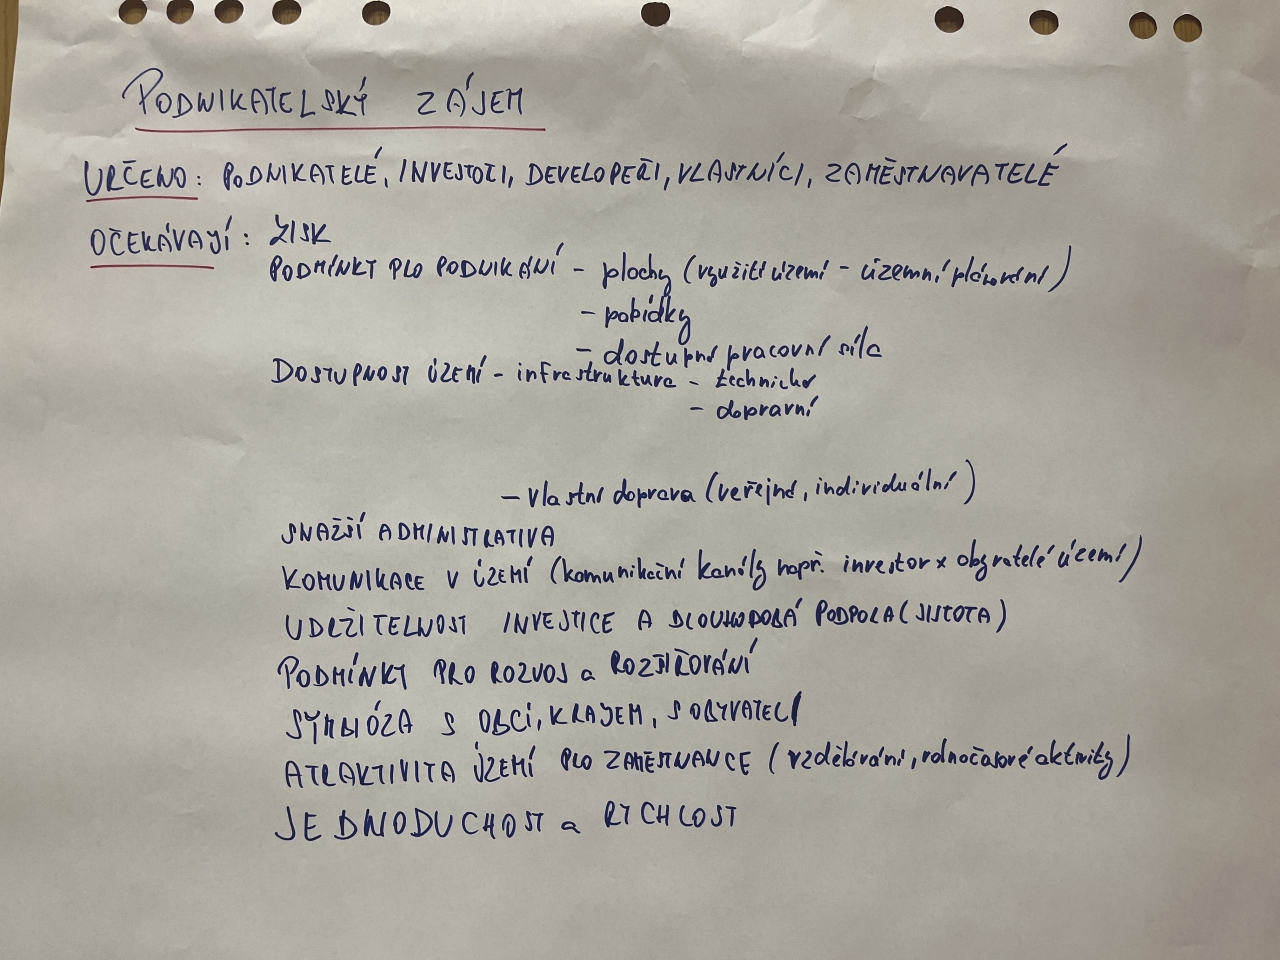 PODNIKATELSKÝ ZÁJEM
URČENO: PODNIKATELÉ, INVESTOŘI, DEVELOPEŘI, VLASTNÍCI, ZAMĚSTNAVATELÉ
OČEKÁVAJÍ: ZISK
PODMÍNKY PRO PODNIKÁNÍ - plochy (využití území - územní plánování)
- pobídky
- dostupná pracovní síla
DOSTUPNOST ÚZEMÍ - infrastruktura - technická
- dopravní
- vlastní doprava (veřejná, individuální)
SNAŽŠÍ ADMINISTRATIVA
KOMUNIKACE V ÚZEMÍ (komunikační kanály např. investor x obyvatelé území)
UDRŽITELNOST INVESTICE A DLOUHODOBÁ PODPORA (JISTOTA)
PODMÍNKY PRO ROZVOJ a ROZŠIŘOVÁNÍ
SYMBIÓZA S OBCÍ, KRAJEM, S OBYVATELI
ATRAKTIVITA ÚZEMÍ PRO ZAMĚSTNANCE (vzdělávání, volnočasové aktivity)
JEDNODUCHOST a RYCHLOST